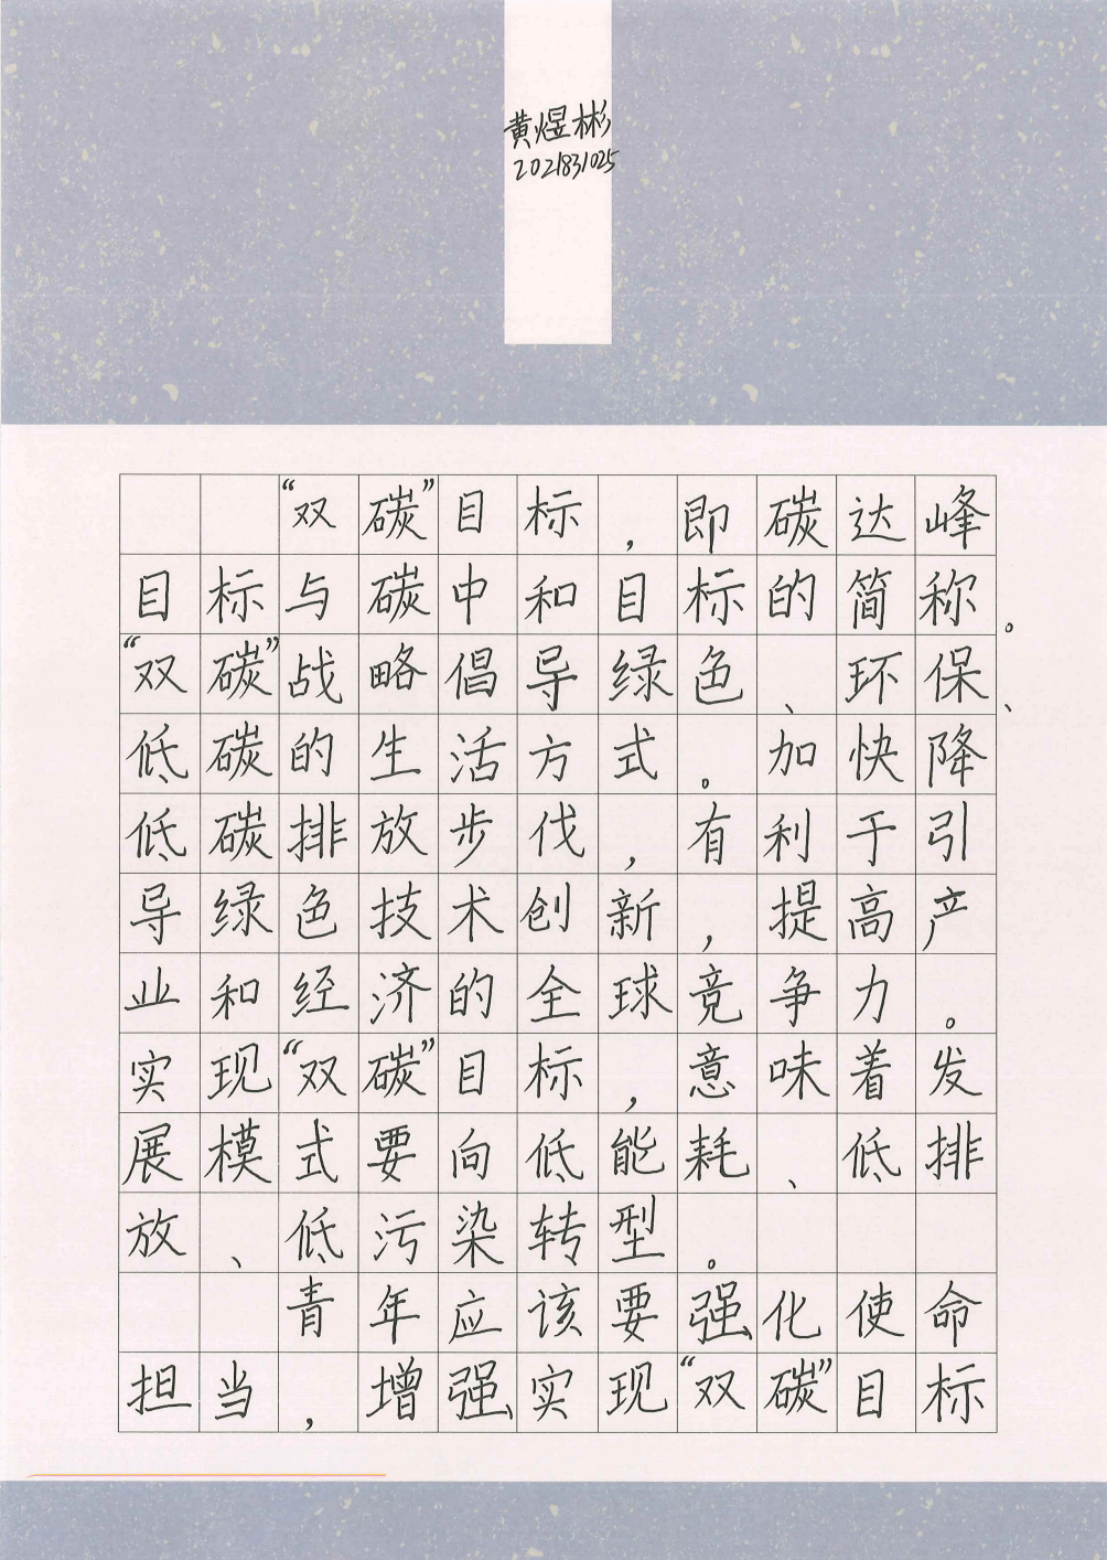 黄煜彬
2021831025
“双碳”目标,即碳达峰
目标与碳中和目标的简称。
“双碳”战略倡导绿色、环保、
低碳的生活方式。加快降
低碳排放步伐,有利于引
导绿色技术创新,提高产
业和经济的全球竞争力。
实现“双碳”目标,意味着发
展模式要向低能耗、低排
放、低污染转型。
青年应该要强化使命
担当,增强实现“双碳”目标